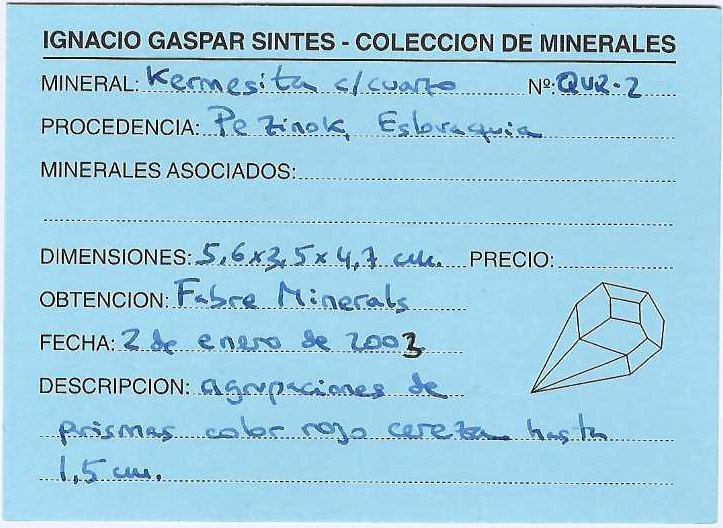 IGNACIO GASPAR SINTES - COLECCION DE MINERALES
MINERAL: Kermesita c/cuarzo Nº: QUR-2
PROCEDENCIA: Pezinok, Eslovaquia
MINERALES ASOCIADOS:
DIMENSIONES: 5,6x3,5x4,7 cm. PRECIO:
OBTENCION: Fabre Minerals
FECHA: 2 de enero de 2003
DESCRIPCION: agrupaciones de
prismas color rojo cereza hasta
1,5 cm.